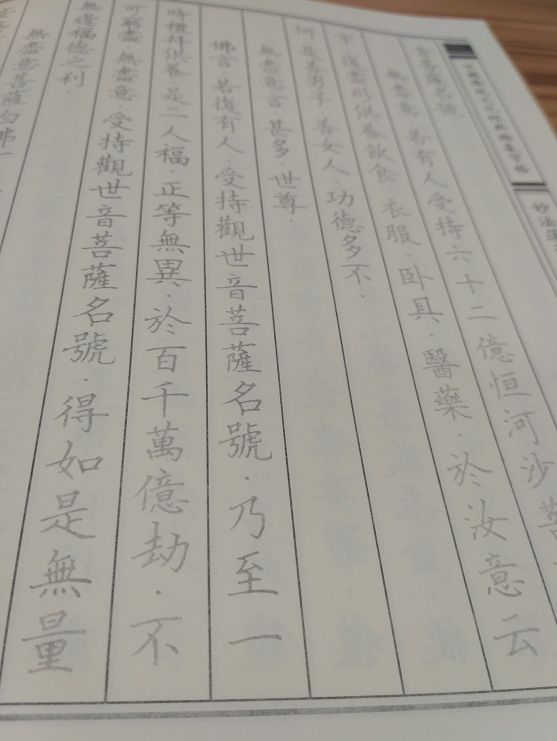 妙法
菩薩名號
無盡意.若有人受持六十二億恒河沙菩
字.復盡形供養飲食.衣服.卧具.醫藥.於汝意云
何.是善男子.善女人.功德多不.
無盡意言.甚多.世尊.
佛言.若復有人.受持觀世音菩薩名號.乃至一
時禮拜供養.是二人福.正等無異.於百千萬億劫.不
可窮盡.無盡意.受持觀世音菩薩名號.得如是無量
無邊福德之利.
無盡意菩薩白佛